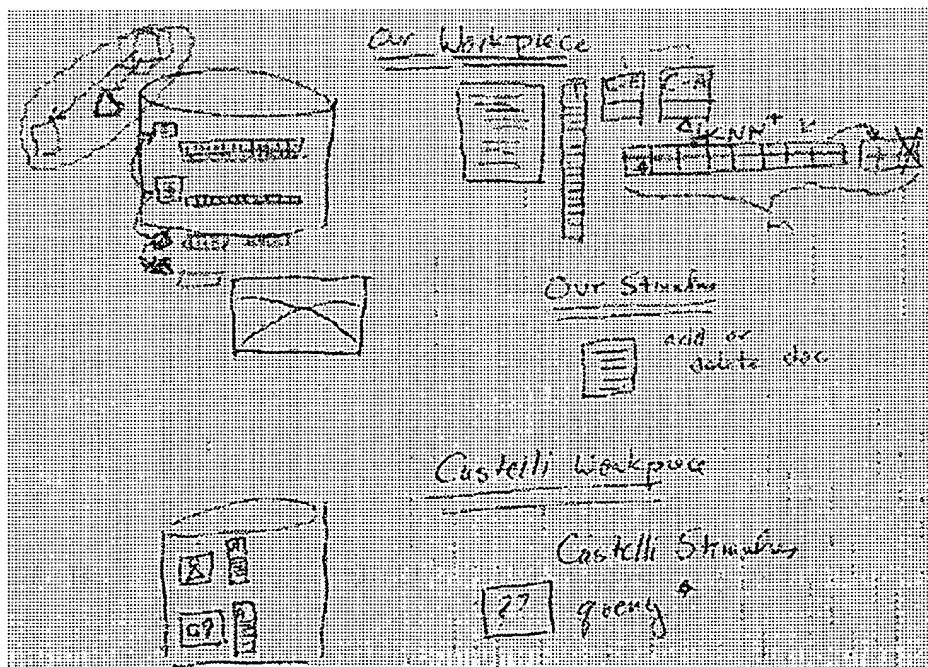 Our Workpiece
C-E C-A
KNN+
Our Stimulus
add or
delete doc
Castelli Workpiece
Castelli Stimulus
?? query
G?